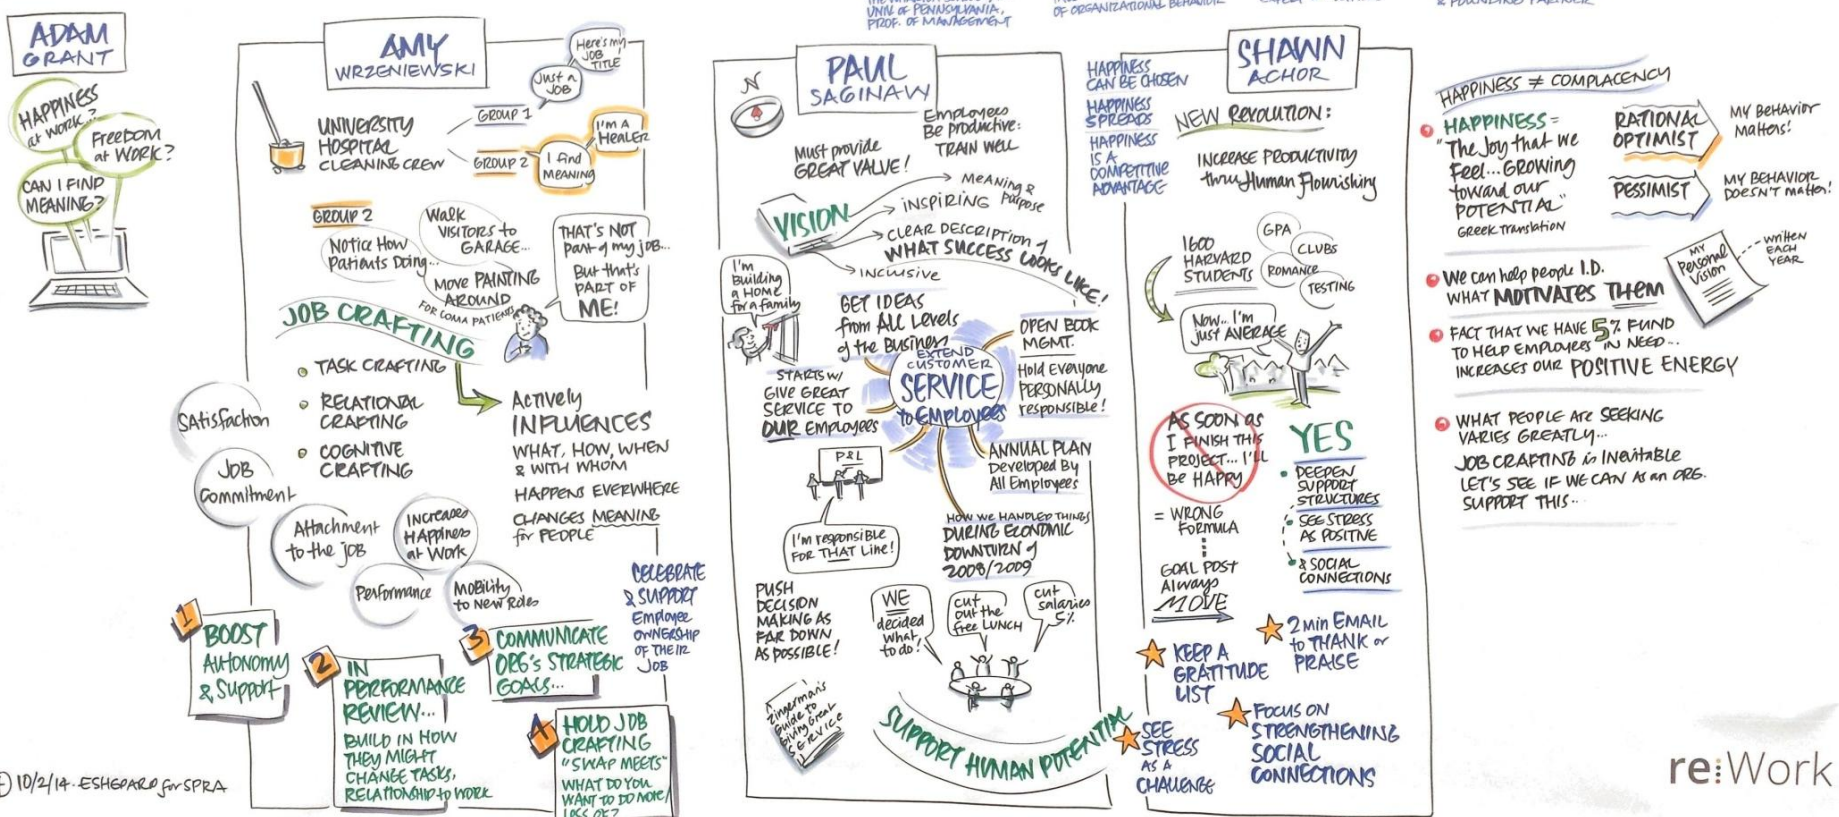 UNIV. OF PENNSYLVANIA,
PROF. OF MANAGEMENT
OF ORGANIZATIONAL BEHAVIOR
& FOUNDING PARTNER
ADAM
GRANT
HAPPINESS
at WORK..?
FREEDOM
at WORK?
CAN I FIND
MEANING?
AMY
WRZENIEWSKI
UNIVERSITY
HOSPITAL
CLEANING CREW
GROUP 1
Just a
JOB
Here's my
JOB
TITLE!
GROUP 2
I find
MEANING
I'M A
HEALER
GROUP 2
Notice How
Patients Doing...
Walk
VISITORS to
GARAGE...
MOVE PAINTING
AROUND
FOR COMA PATIENTS
THAT'S NOT
Part of my job...
But that's
PART OF
ME!
JOB CRAFTING
TASK CRAFTING
RELATIONAL
CRAFTING
COGNITIVE
CRAFTING
Actively
INFLUENCES
WHAT, HOW, WHEN
& WITH WHOM
HAPPENS EVERYWHERE
CHANGES MEANING
for PEOPLE
Satisfaction
JOB
Commitment
Attachment
to the job
Increased
Happiness
at Work
Performance
Mobility
to New Roles
CELEBRATE
& SUPPORT
Employee
OWNERSHIP
OF THEIR
JOB
1
BOOST
Autonomy
& Support
2
IN
PERFORMANCE
REVIEW...
BUILD IN HOW
THEY MIGHT
CHANGE TASKS,
RELATIONSHIP to WORK
3
COMMUNICATE
ORG's STRATEGIC
GOALS...
4
HOLD JOB
CRAFTING
"SWAP MEETS"
WHAT DO YOU
WANT TO DO MORE/
LESS OF?
© 10/2/14. ESHEPARD for SPRA
PAUL
SAGINAW
N
Must provide
GREAT VALUE!
Employees
Be productive:
TRAIN WELL
VISION
MEANING &
Purpose
INSPIRING
CLEAR DESCRIPTION of
WHAT SUCCESS LOOKS LIKE!
INCLUSIVE
I'm
Building
a HOME
for a family
GET IDEAS
from ALL Levels
of the Business
OPEN BOOK
MGMT.
Hold Everyone
PERSONALLY
responsible!
EXTEND
CUSTOMER
SERVICE
to Employees
STARTS W/
GIVE GREAT
SERVICE TO
OUR Employees
P&L
I'm responsible
FOR THAT Line!
ANNUAL PLAN
Developed By
All Employees
HOW WE HANDLED THINGS
DURING ECONOMIC
DOWNTURN of
2008/2009
PUSH
DECISION
MAKING AS
FAR DOWN
AS POSSIBLE!
WE
decided
what
to do!
CUT
out the
free LUNCH
CUT
salaries
5%
Zingerman's
Guide to
Giving Great
SERVICE
SUPPORT HUMAN POTENTIAL
SHAWN
ACHOR
HAPPINESS
CAN BE CHOSEN
HAPPINESS
SPREADS
HAPPINESS
IS A
COMPETITIVE
ADVANTAGE
NEW REVOLUTION:
INCREASE PRODUCTIVITY
thru Human Flourishing
1600
HARVARD
STUDENTS
GPA
CLUBS
ROMANCE
TESTING
Now... I'm
just AVERAGE
AS SOON AS
I FINISH THIS
PROJECT... I'LL
Be HAPPY
= WRONG
FORMULA
GOAL POST
Always
MOVE
YES
DEEPEN
SUPPORT
STRUCTURES
SEE STRESS
AS POSITIVE
& SOCIAL
CONNECTIONS
KEEP A
GRATITUDE
LIST
2 min EMAIL
to THANK or
PRAISE
SEE
STRESS
AS A
CHALLENGE
FOCUS ON
STRENGTHENING
SOCIAL
CONNECTIONS
HAPPINESS ≠ COMPLACENCY
HAPPINESS =
"The Joy that we
Feel... GROWING
toward our
POTENTIAL"
GREEK translation
RATIONAL
OPTIMIST
MY BEHAVIOR
Matters!
PESSIMIST
MY BEHAVIOR
DOESN'T matter!
We can help people I.D.
WHAT MOTIVATES THEM
MY
Personal
Vision
written
EACH
YEAR
FACT THAT WE HAVE 5% FUND
TO HELP EMPLOYEES IN NEED...
INCREASES OUR POSITIVE ENERGY
WHAT PEOPLE ARE SEEKING
VARIES GREATLY...
JOB CRAFTING is Inevitable
LET'S SEE IF WE CAN AS an ORG.
SUPPORT THIS...
re:Work